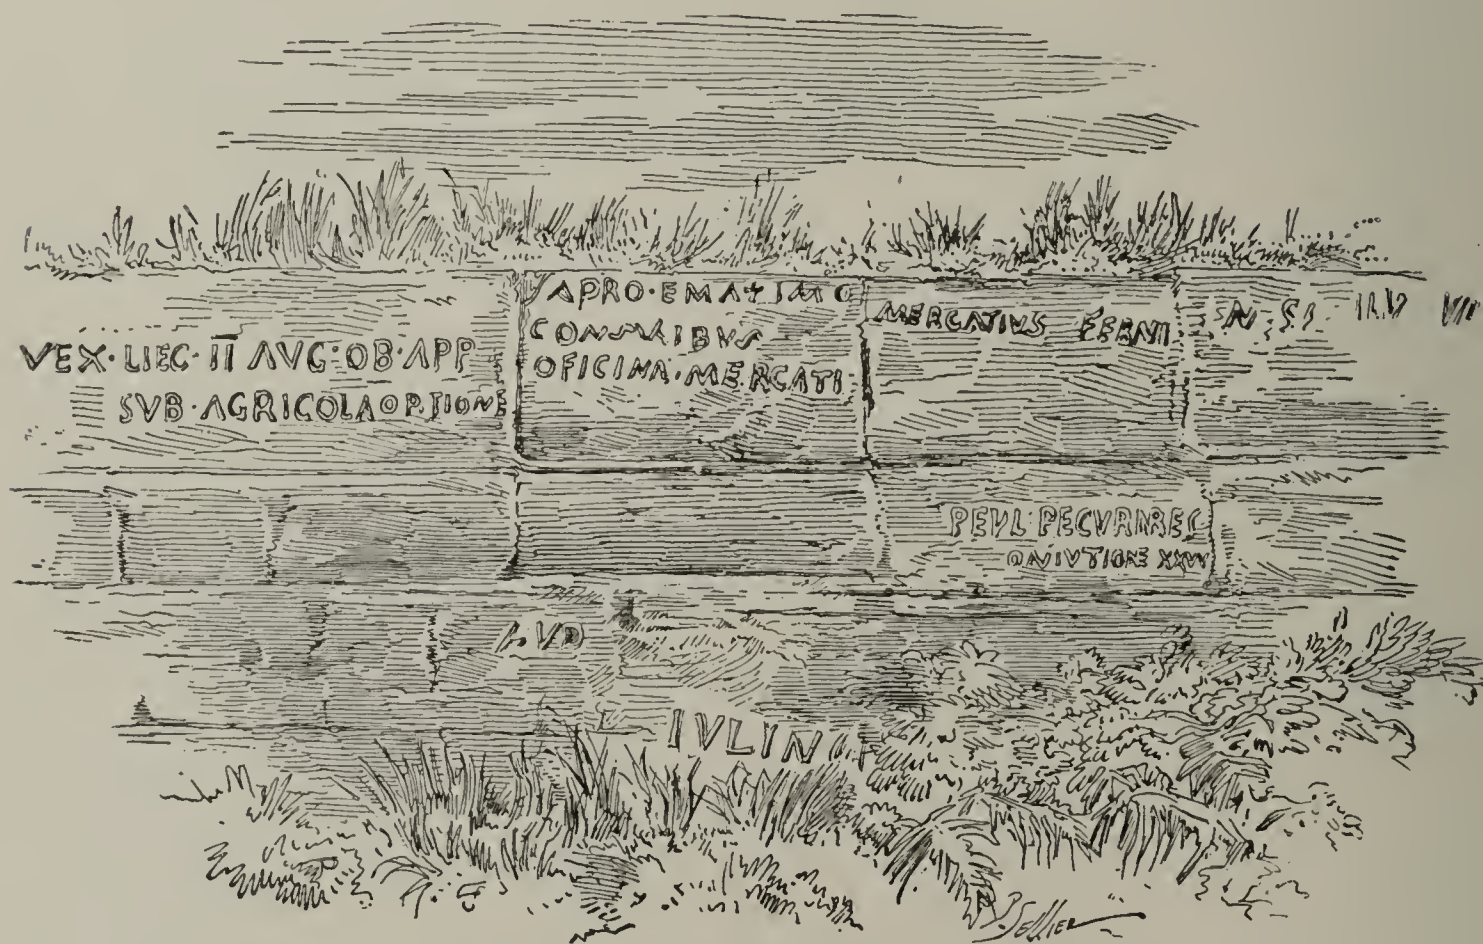 VEX·LIEC·II AVG·OB·APP
SVB·AGRICOLA OPTIONE
APRO·E MAXIMO
CONMRIBVS
OFICINA·MERCATI
MERCATIVS FERNTI
PEVL PECVRNREC
IVLINO
P. SELLIER